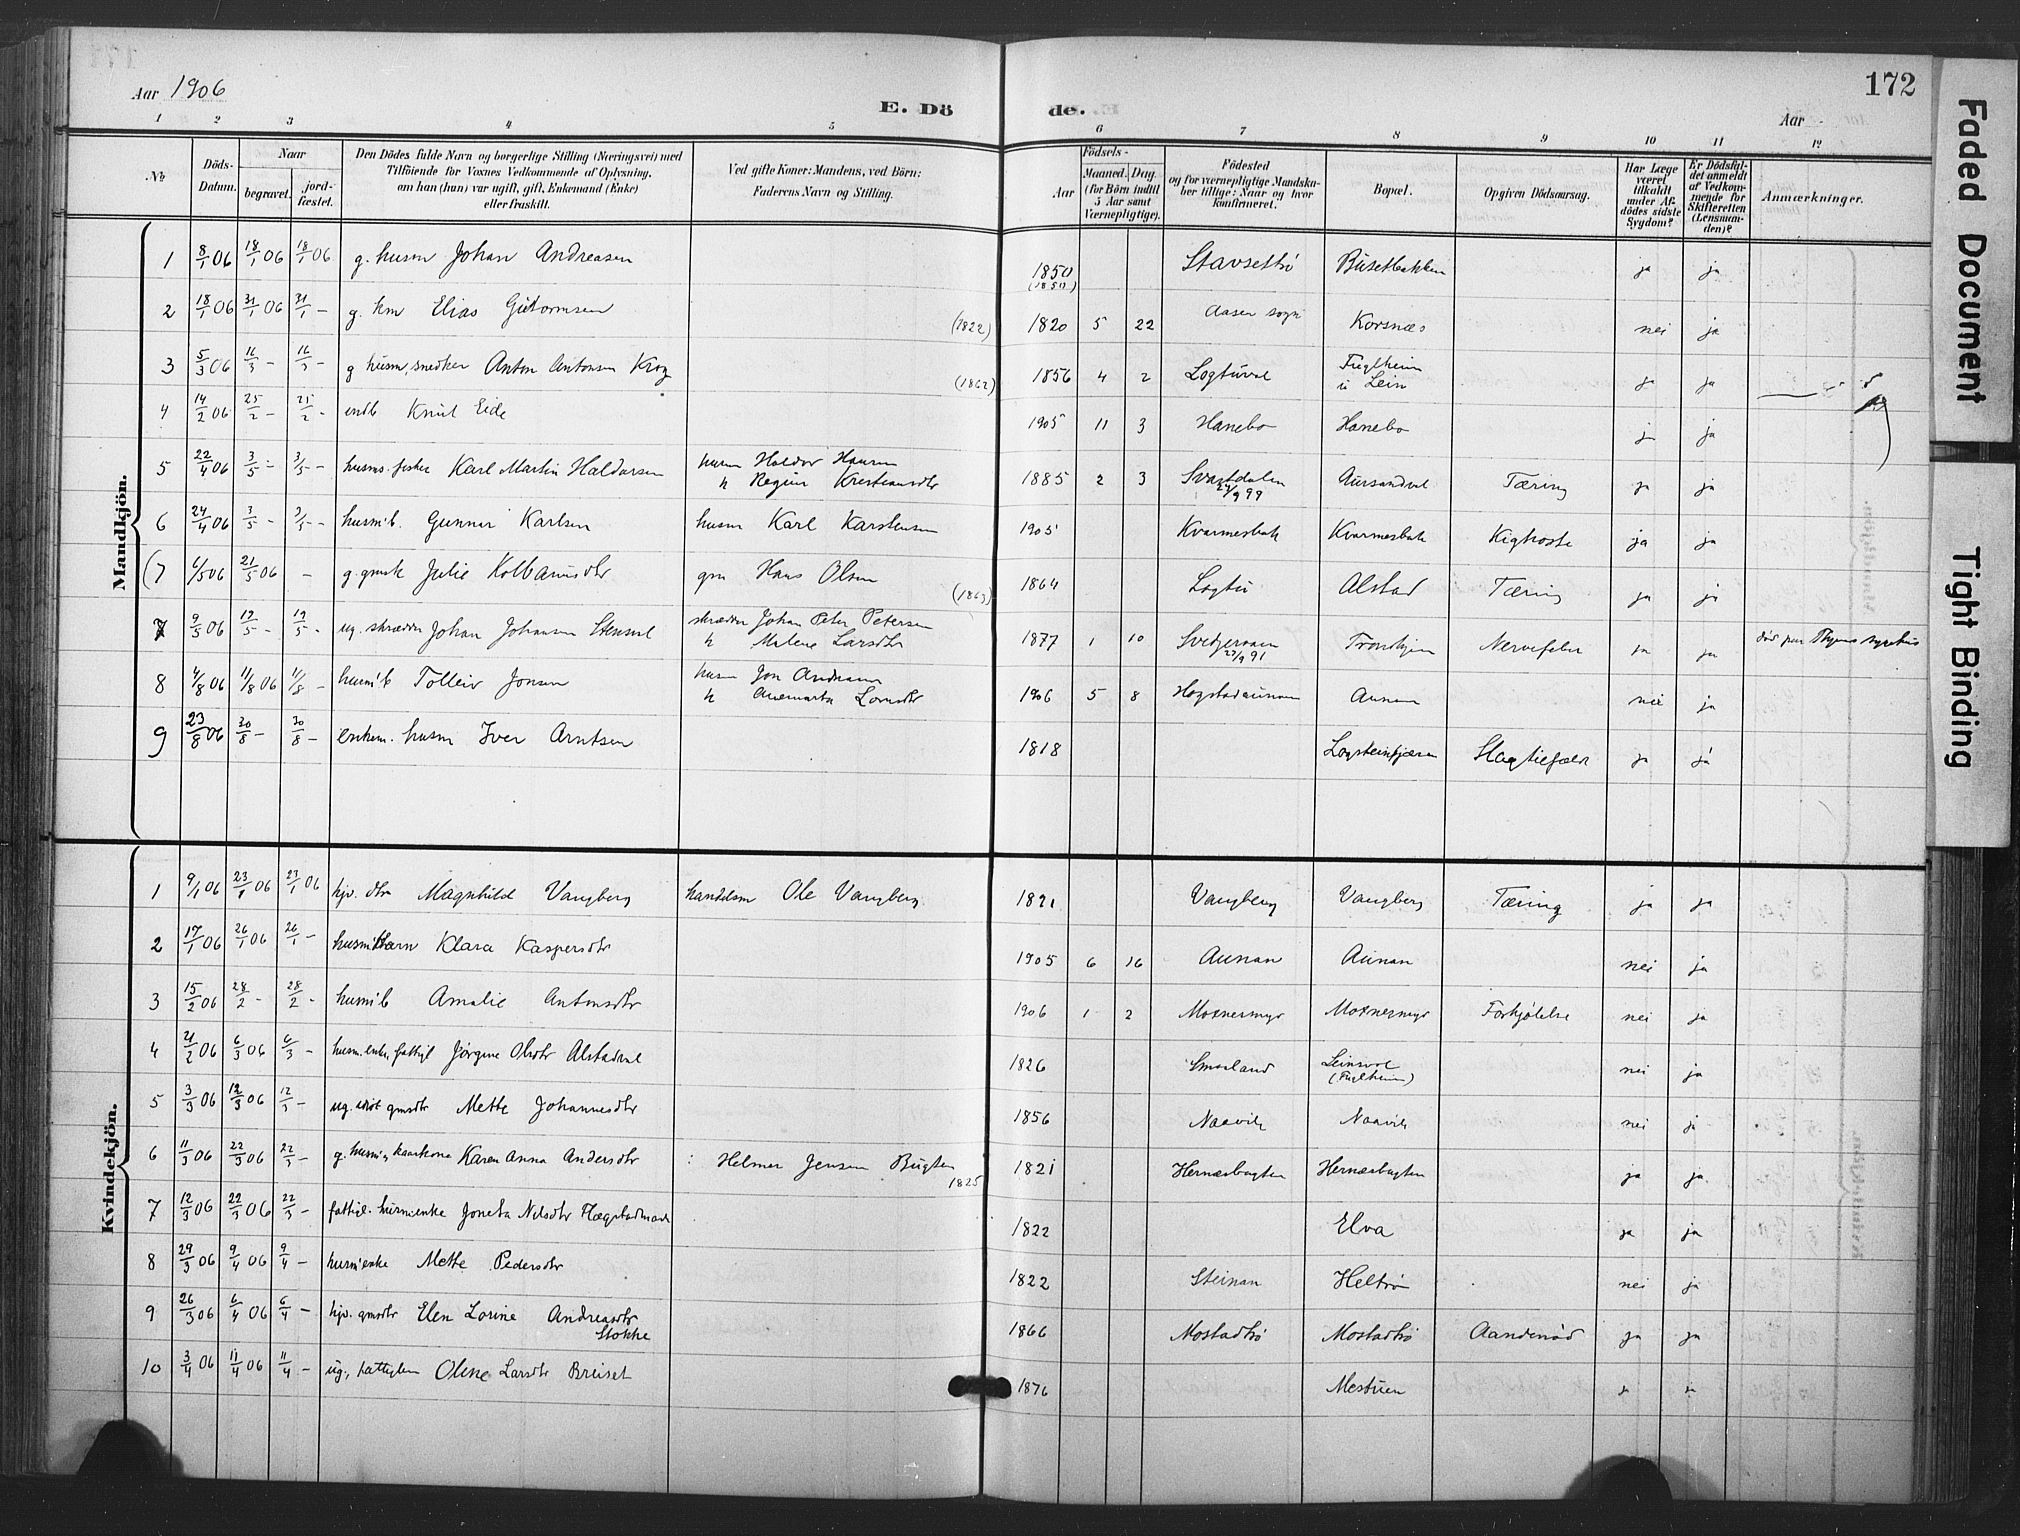 Aar 1906
E. Döde.
172
Aar
1 2 3 4 5 6 7 8 9 10 11 12
№
Döds-Datum.
Naar
begravet.
jord-fæstet.
Den Dödes fulde Navn og borgerlige Stilling (Næringsvei) med
Tilföiende for Voxnes Vedkommende af Oplysning,
om han (hun) var ugift, gift, Enkemand (Enke)
eller fraskilt.
Ved gifte Koner: Mandens, ved Börn:
Faderens Navn og Stilling.
Födsels-
Aar
Maaned. Dag.
(for Börn indtil 5 Aar samt Værnepligtige).
Födested
og for værnepligtige Mandska-
ber tillige: Naar og hvor
konfirmeret.
Bopæl.
Opgiven Dödsaarsag.
Har Læge været tilkaldt under Afdödes sidste Sygdom?
Er Dödsfaldet anmeldt af Vedkommende for Skifteretten (Lensmanden)?
Anmærkninger.
Mandkjön.
1 8/1 06 18/1 06 18/1 06 g. husm Johan Andreasen 1850 Stavsettrö Busetbakken ja ja
(1850)
2 18/1 06 31/1 06 31/1 – g. km Elias Guttormsen (1822) 1820 5 22 Aasen sogn Korsnæs nei ja
3 5/3 06 16/3 – 16/3 – g husm, snedker Anton Antonsen Krog (1862) 1856 4 2 Logtuval Fuglheim u Lein ja ja
4 14/2 06 25/2 – 25/2 – indb Knut Eide 1905 11 3 Hanebo Hanebo ja ja
5 22/4 06 3/5 – 3/5 – husms. fisker Karl Martin Haldorsen husm Haldor Hansen
h Regine Kristiansdtr 1885 2 3 Svartdalen Aursandval Tæring ja ja
6 24/4 06 3/5 – 3/5 – husm'b. Gunnar Karlsen husm Karl Karstensen 1905 Kvarmesbak Kvarmesbak Kighoste ja ja
(7 6/5 06 21/5 06 – g. gmsk Julie Kolbanusdtr gm Hans Olsen (1863) 1864 Logtu Alstad Tæring ja ja
7 9/5 06 19/5 – 19/5 – ug. skrædder Johan Johansen Stensvl skrædder Johan Peter Petersen
h Malene Larsdtr 1877 1 10 23/9 91 Trondhjem Nervefeber ja ja
8 4/8 06 11/8 06 11/8 – husm'b Tolleiv Jonsen husm Jon Andreasen
h Anemarta Lornsdtr 1906 5 8 Hogstadaunan Aunan nei ja
9 23/8 06 30/8 – 30/8 – enkem. husm Iver Arntsen 1818 Logsteinfjæren Slagtilfæld ja ja
Kvindekjön.
1 9/1 06 23/1 06 23/1 06 hjv. dtr Magnhild Vangberg handelsm Ole Vangberg 1891 Vangberg Vangberg Tæring ja ja
2 17/1 06 26/1 06 26/1 – husm'barn Klara Kaspersdtr 1905 6 16 Aunan Aunan nei ja
3 15/2 06 28/2 – 28/2 – husm'b Amalie Antonsdtr 1906 1 2 Moxnesmyr Moxnesmyr Forkjölelse nei ja
4 21/2 06 6/3 06 6/3 – husm. enke, fattigl Jörgine Olsdtr Alstadval 1826 Smaaland Leinsvol
(Fuglheim) nei ja
5 3/3 06 12/3 06 12/3 – ug. idiot gmsdtr Mette Johannesdtr 1856 Naavik Naavik nei ja
6 11/3 06 22/3 06 22/3 – g. husm, kaarkone Karen Anna Andersdtr : Helmer Jensen Bugten 1825 1821 Hernæsbugten Hernæsbugten ja ja
7 12/3 06 22/3 06 22/3 – fattigl. husm'enke Joneta Nilsdtr Hægstadmark 1822 Elva ja ja
8 29/3 06 9/4 06 9/4 – husm'enke Mette Pedersdtr 1822 Steinan Heltrö nei ja
9 26/3 06 6/4 06 6/4 – hjv. gmsdtr Elen Lorine Andreasdtr
Stokke 1866 Mostadtrö Mostadtrö Aandenöd ja ja
10 3/4 06 11/4 06 11/4 – ug., fattiglem Oline Larsdtr Bruset 1876 Mestuen ja ja
Faded Document
Tight Binding